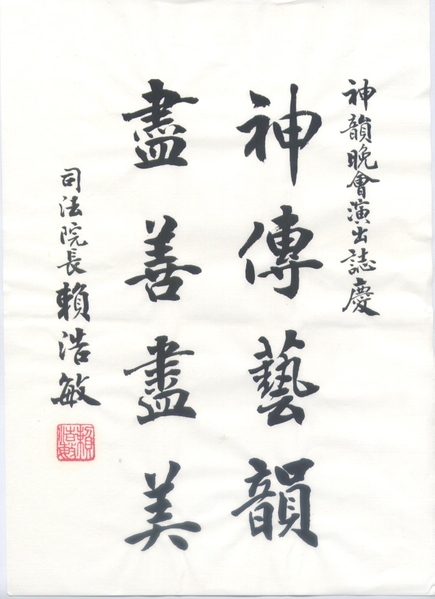 神韻晚會演出誌慶
神傳藝韻
盡善盡美
司法院長賴浩敏
賴浩敏